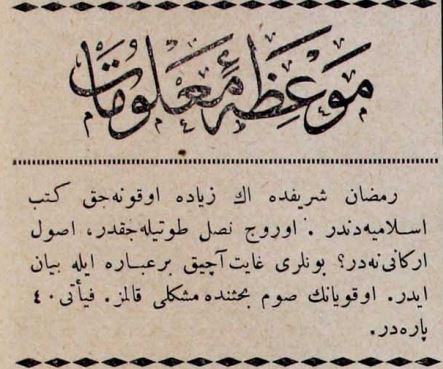 موعظهٔ معلومات
رمضان شريفده اك زياده اوقونه‌جق كتب
اسلاميه‌دندر . اوروج نصل طوتيله‌جقدر، اصول
اركانى نه‌در؟ بونلرى غايت آچيق برعباره ايله بيان
ايدر. اوقويانك صوم بحثنده مشكلى قالمز. فيأتى ٤٠
پاره‌در.